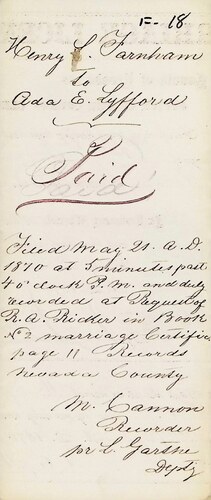 F-18
Henry S. Farnham
to
Ada E. Gyfford
Paid
Filed May 21. A.D.
1870 at 5 minutes past
4 o'clock P.M. and duly
recorded at Request of
R.A. Ridler in Book
No 2 marriage Certific
page 11 Records
Nevada County
M. Cannon
Recorder
pr C. Garthe
Depty